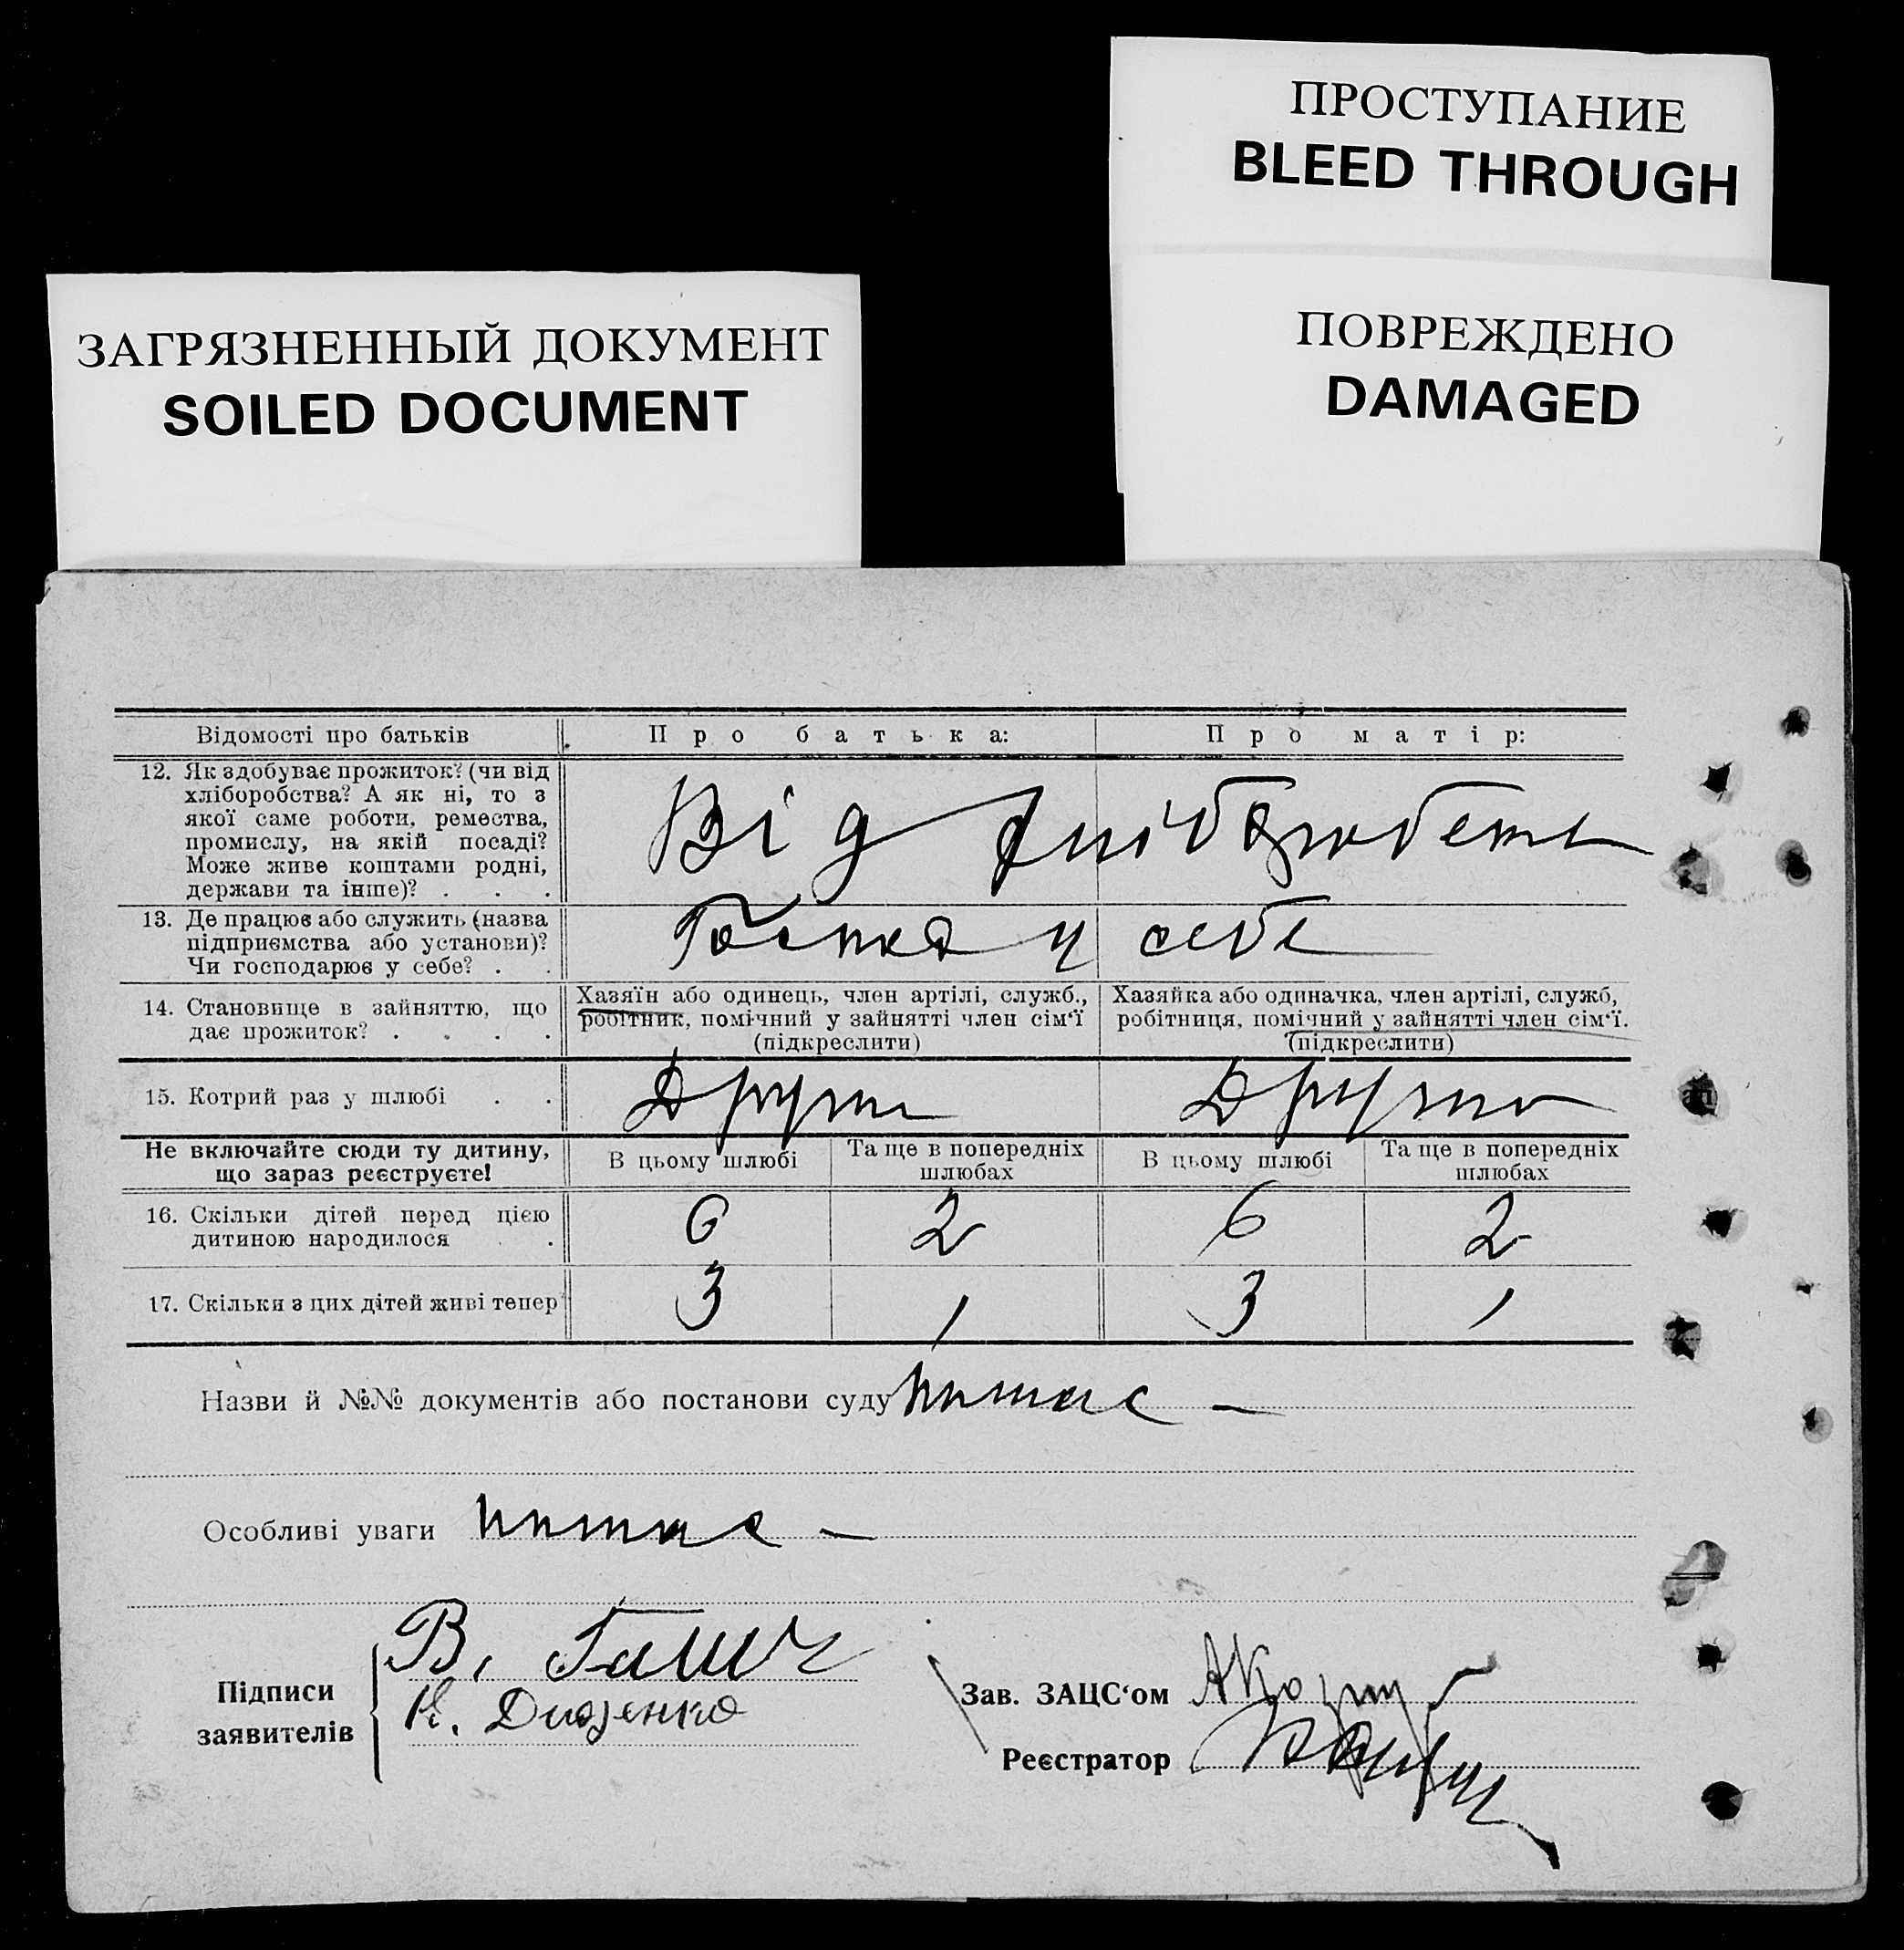 ПРОСТУПАНИЕ
BLEED THROUGH
ЗАГРЯЗНЕННЫЙ ДОКУМЕНТ
SOILED DOCUMENT
ПОВРЕЖДЕНО
DAMAGED
Відомості про батьків Про батька: Про матір:
12. Як здобуває прожиток? (чи від
хліборобства? А як ні, то з
якої саме роботи, ремества,
промислу, на якій посаді?
Може живе коштами родні,
держави та інше)? . . .
Від
13. Де працює або служить (назва
підприємства або установи)?
Чи господарює у себе? . .
у себе
14. Становище в зайняттю, що
дає прожиток? . . . .
Хазяїн або одинець, член артілі, служб.,
робітник, помічний у зайнятті член сім‘ї
(підкреслити)
Хазяйка або одиначка, член артілі, служб,
робітниця, помічний у зайнятті член сім‘ї.
(підкреслити)
15. Котрий раз у шлюбі . .
Не включайте сюди ту дитину,
що зараз реєструєте!
В цьому шлюбі
Та ще в попередніх
шлюбах
В цьому шлюбі
Та ще в попередніх
шлюбах
16. Скільки дітей перед цією
дитиною народилося .
6 2 6 2
17. Скільки з цих дітей живі тепер
3 1 3 1
Назви й №№ документів або постанови суду немає —
Особливі уваги немає —
Підписи
заявителів
В.
Зав. ЗАЦС‘ом
Реєстратор